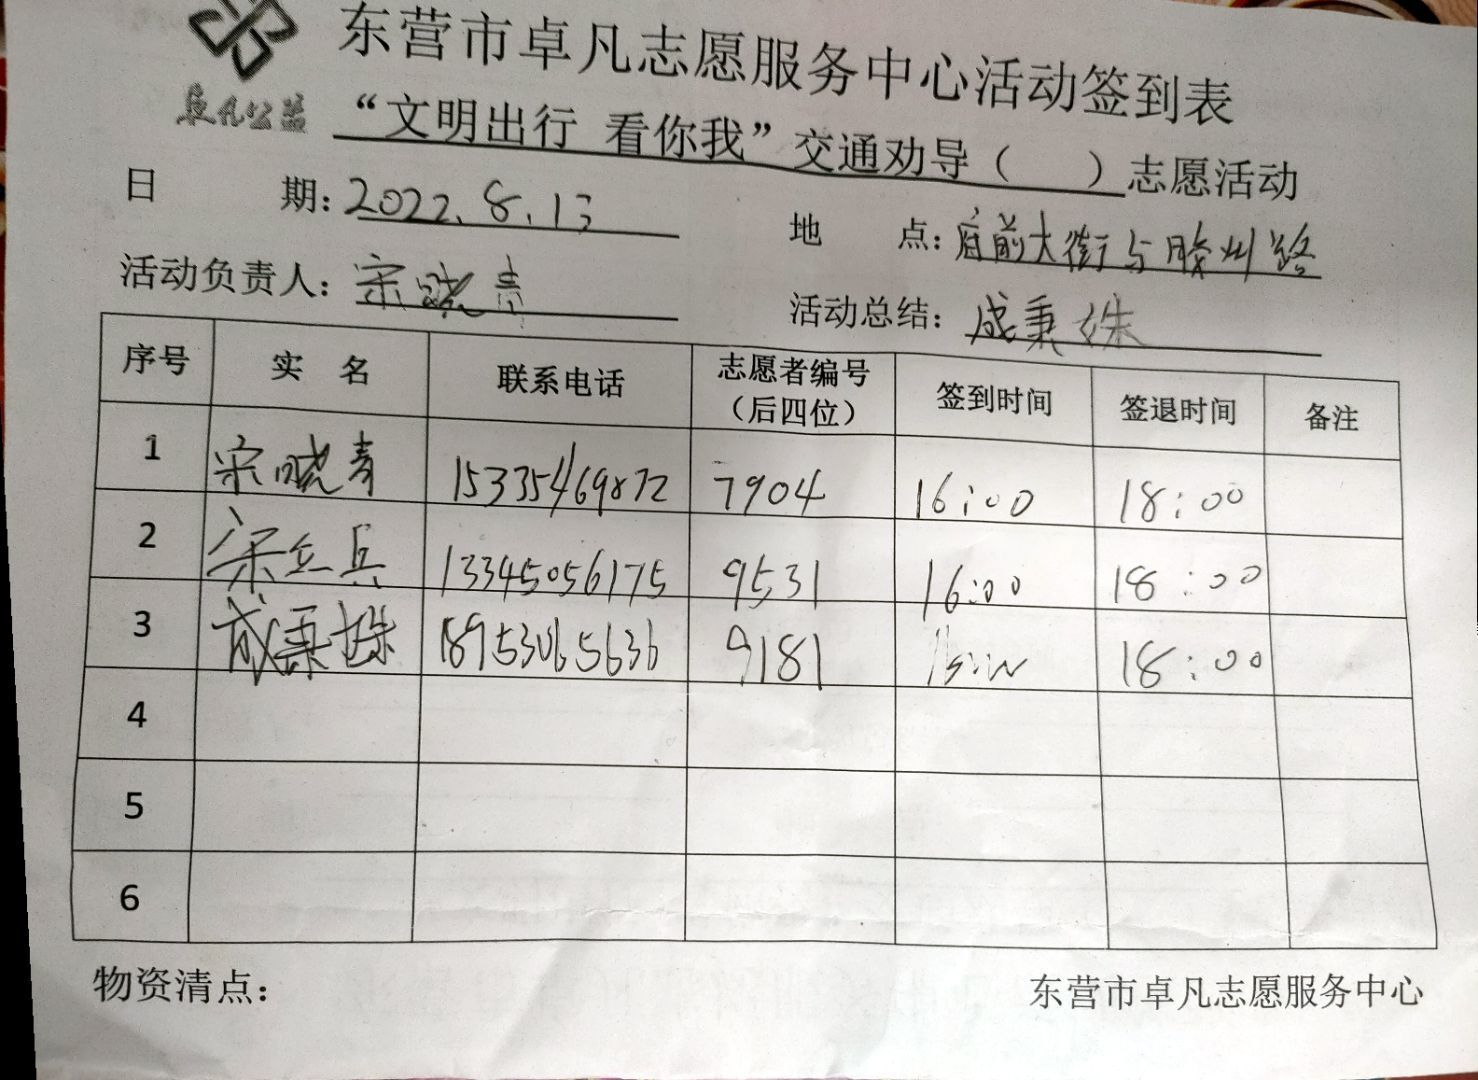 东营市卓凡志愿服务中心活动签到表
卓凡公益
“文明出行 看你我”交通劝导（ ）志愿活动
日 期：2022.8.13 地 点：府前大街与胶州路
活动负责人：宋晓青 活动总结：成秉姝
序号 实 名 联系电话 志愿者编号（后四位） 签到时间 签退时间 备注
1 宋晓青 15335469872 7904 16:00 18:00
2 兵 13345056175 9531 16:00 18:00
3 成秉姝 18953065636 9181 18:00
4
5
6
物资清点： 东营市卓凡志愿服务中心